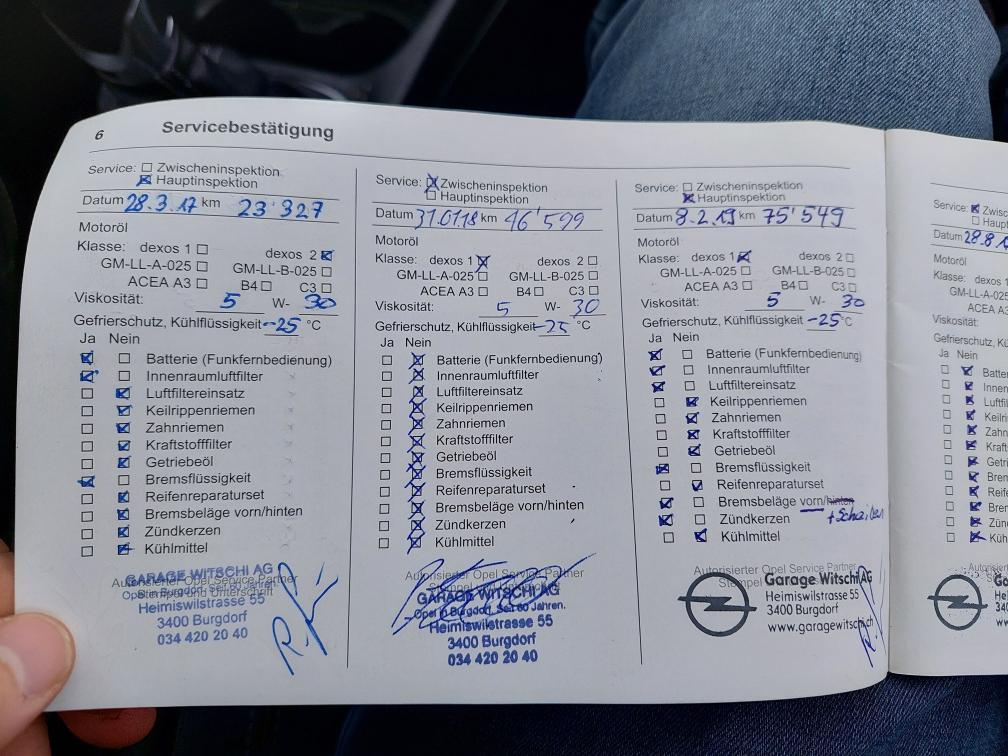 6 Servicebestätigung
Service: ☐ Zwischeninspektion
☒ Hauptinspektion
Datum 28.3.17 km 23'327
Motoröl
Klasse: dexos 1 ☐ dexos 2 ☒
GM-LL-A-025 ☐ GM-LL-B-025 ☐
ACEA A3 ☐ B4 ☐ C3 ☐
Viskosität: 5 W- 30
Gefrierschutz, Kühlflüssigkeit -25 °C
Ja Nein
☒ ☐ Batterie (Funkfernbedienung)
☒ ☐ Innenraumluftfilter
☐ ☒ Luftfiltereinsatz
☐ ☒ Keilrippenriemen
☐ ☒ Zahnriemen
☐ ☒ Kraftstofffilter
☐ ☒ Getriebeöl
☒ ☐ Bremsflüssigkeit
☐ ☒ Reifenreparaturset
☐ ☒ Bremsbeläge vorn/hinten
☐ ☒ Zündkerzen
☐ ☒ Kühlmittel
Autorisierter Opel Service Partner
Stempel und Unterschrift
GARAGE WITSCHI AG
Opel in Burgdorf. Seit 60 Jahren.
Heimiswilstrasse 55
3400 Burgdorf
034 420 20 40
Service: ☒ Zwischeninspektion
☐ Hauptinspektion
Datum 31.01.18 km 46'599
Motoröl
Klasse: dexos 1 ☒ dexos 2 ☐
GM-LL-A-025 ☐ GM-LL-B-025 ☐
ACEA A3 ☐ B4 ☐ C3 ☐
Viskosität: 5 W- 30
Gefrierschutz, Kühlflüssigkeit -25 °C
Ja Nein
☐ ☒ Batterie (Funkfernbedienung)
☐ ☒ Innenraumluftfilter
☐ ☒ Luftfiltereinsatz
☐ ☒ Keilrippenriemen
☐ ☒ Zahnriemen
☐ ☒ Kraftstofffilter
☐ ☒ Getriebeöl
☐ ☒ Bremsflüssigkeit
☐ ☒ Reifenreparaturset
☐ ☒ Bremsbeläge vorn/hinten
☐ ☒ Zündkerzen
☐ ☒ Kühlmittel
Autorisierter Opel Service Partner
GARAGE WITSCHI AG
Opel in Burgdorf. Seit 60 Jahren.
Heimiswilstrasse 55
3400 Burgdorf
034 420 20 40
Service: ☐ Zwischeninspektion
☒ Hauptinspektion
Datum 8.2.19 km 75'549
Motoröl
Klasse: dexos 1 ☒ dexos 2 ☐
GM-LL-A-025 ☐ GM-LL-B-025 ☐
ACEA A3 ☐ B4 ☐ C3 ☐
Viskosität: 5 W- 30
Gefrierschutz, Kühlflüssigkeit -25 °C
Ja Nein
☒ ☐ Batterie (Funkfernbedienung)
☒ ☐ Innenraumluftfilter
☒ ☐ Luftfiltereinsatz
☐ ☒ Keilrippenriemen
☐ ☒ Zahnriemen
☐ ☒ Kraftstofffilter
☐ ☒ Getriebeöl
☒ ☐ Bremsflüssigkeit
☐ ☒ Reifenreparaturset
☒ ☐ Bremsbeläge vorn/hinten
☒ ☐ Zündkerzen + Scheiben
☐ ☒ Kühlmittel
Autorisierter Opel Service Partner
Garage Witschi AG
Heimiswilstrasse 55
3400 Burgdorf
www.garagewitschi.ch
Service: ☒
Datum 28.8.
Motoröl
Klasse:
GM-LL-A
ACEA
Viskosität:
Ja Nein